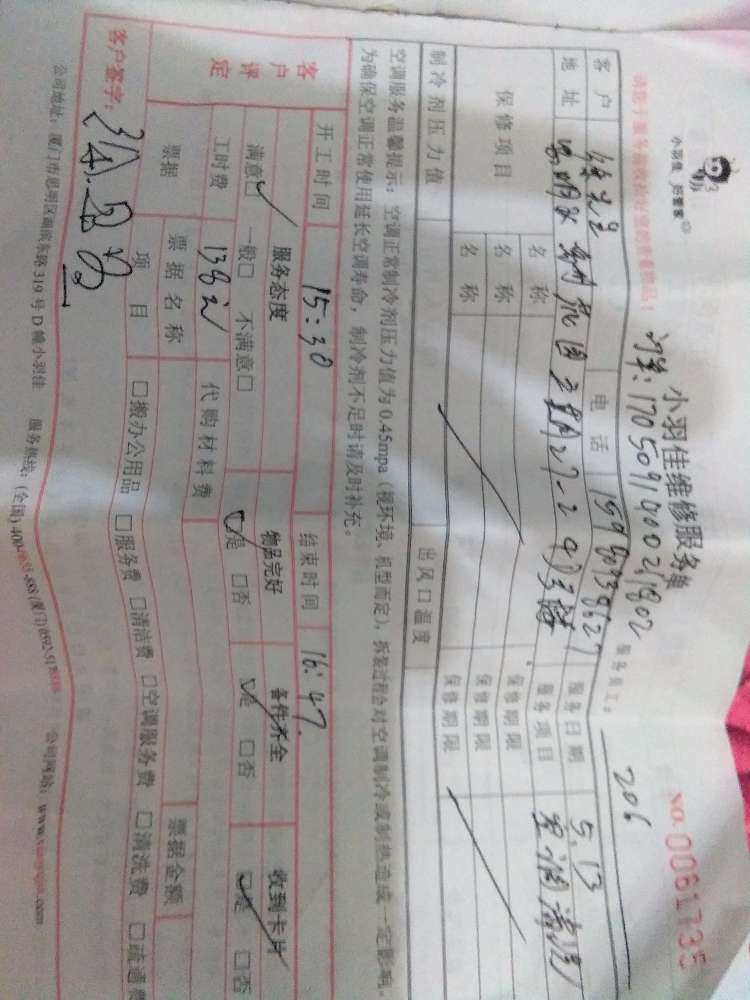 小羽佳 好管家
小羽佳维修服务单
NO. 0061735
订单: 17050914002, 1802
服务员工: 206
客户 先生 电话 15980738627 服务日期 5.13
地址 思明区 27-2 服务项目 空调清洗
保修项目 名称 保修期限
名称 保修期限
名称 保修期限
制冷剂压力值 出风口温度
空调服务温馨提示: 空调正常制冷剂压力值为0.45mpa (视环境、机型而定), 拆装过程会对空调制冷或制热造成一定影响。
为确保空调正常使用延长空调寿命, 制冷剂不足时请及时补充。
开工时间 15:30 结束时间 16:47.
客户评定 服务态度 物品完好 备件齐全 收到卡片
满意□ 一般□ 不满意□ □是 □否 □是 □否 □是 □否
工时费 138元 代购材料费
票据 票据名称 票据金额
项目 □搬办公用品 □服务费 □清洁费 □空调服务费 □清洗费 □疏通费
客户签字:
公司地址: 厦门市思明区湖滨东路319号D幢小羽佳 服务热线: (全国) (厦门) 公司网站: